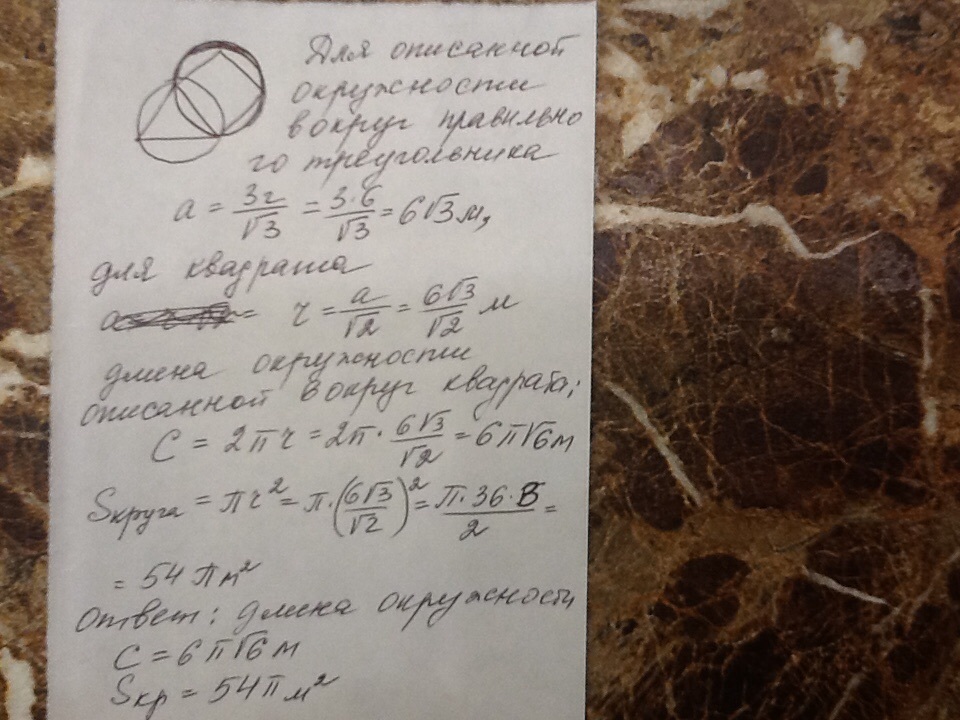 Для описанной
окружности
вокруг правильно
го треугольника
a = 3r/√3 = 3·6/√3 = 6√3 м,
для квадрата
= r = a/√2 = 6√3/√2 м
длина окружности
описанной вокруг квадрата;
C = 2πr = 2π · 6√3/√2 = 6π√6 м
Sкруга = πr² = π·(6√3/√2)² = π·36·3/2 =
= 54 π м²
Ответ: длина окружности
C = 6π√6 м
Sкр = 54π м²